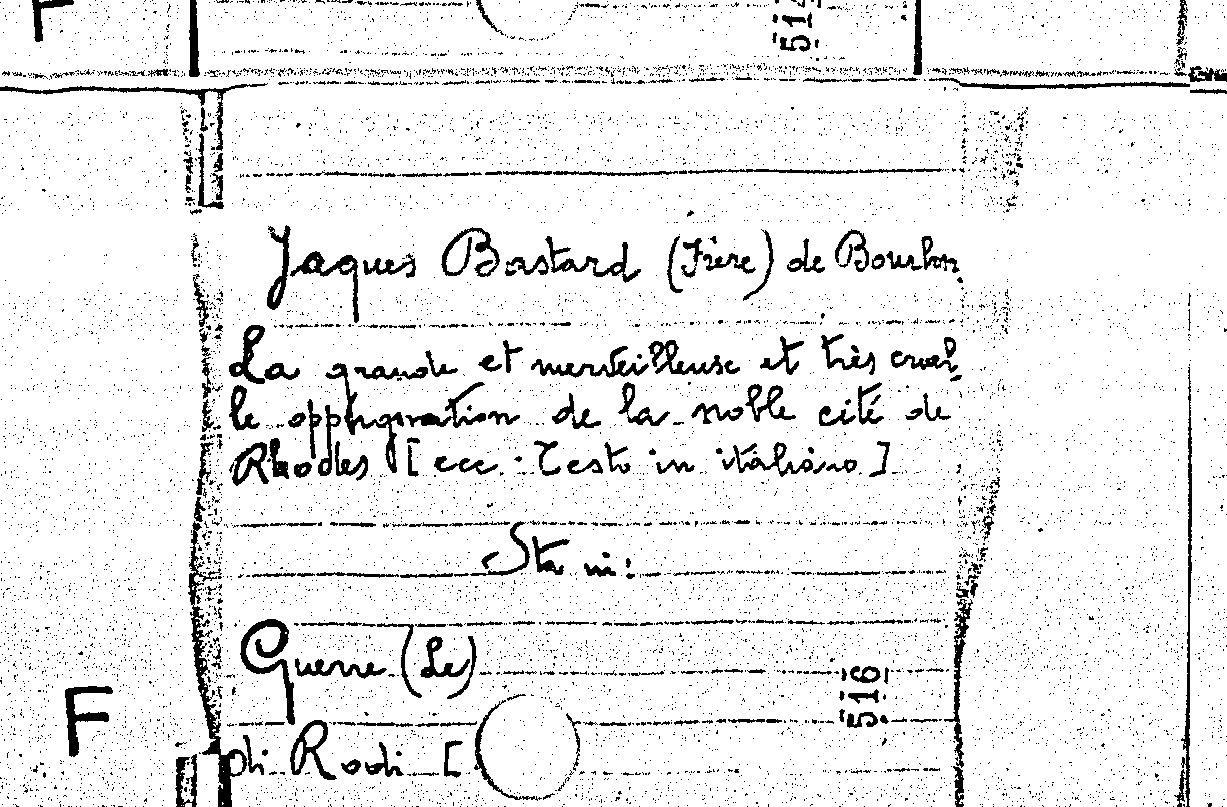 F
514
Jaques Bastard (Frère) de Bourbon.
La grande et merveilleuse et très cruel-
le oppugnation de la noble cité de
Rhodes [ecc. Testo in italiano]
Sta in:
Guerre (Le)
516
F
di Rodi [